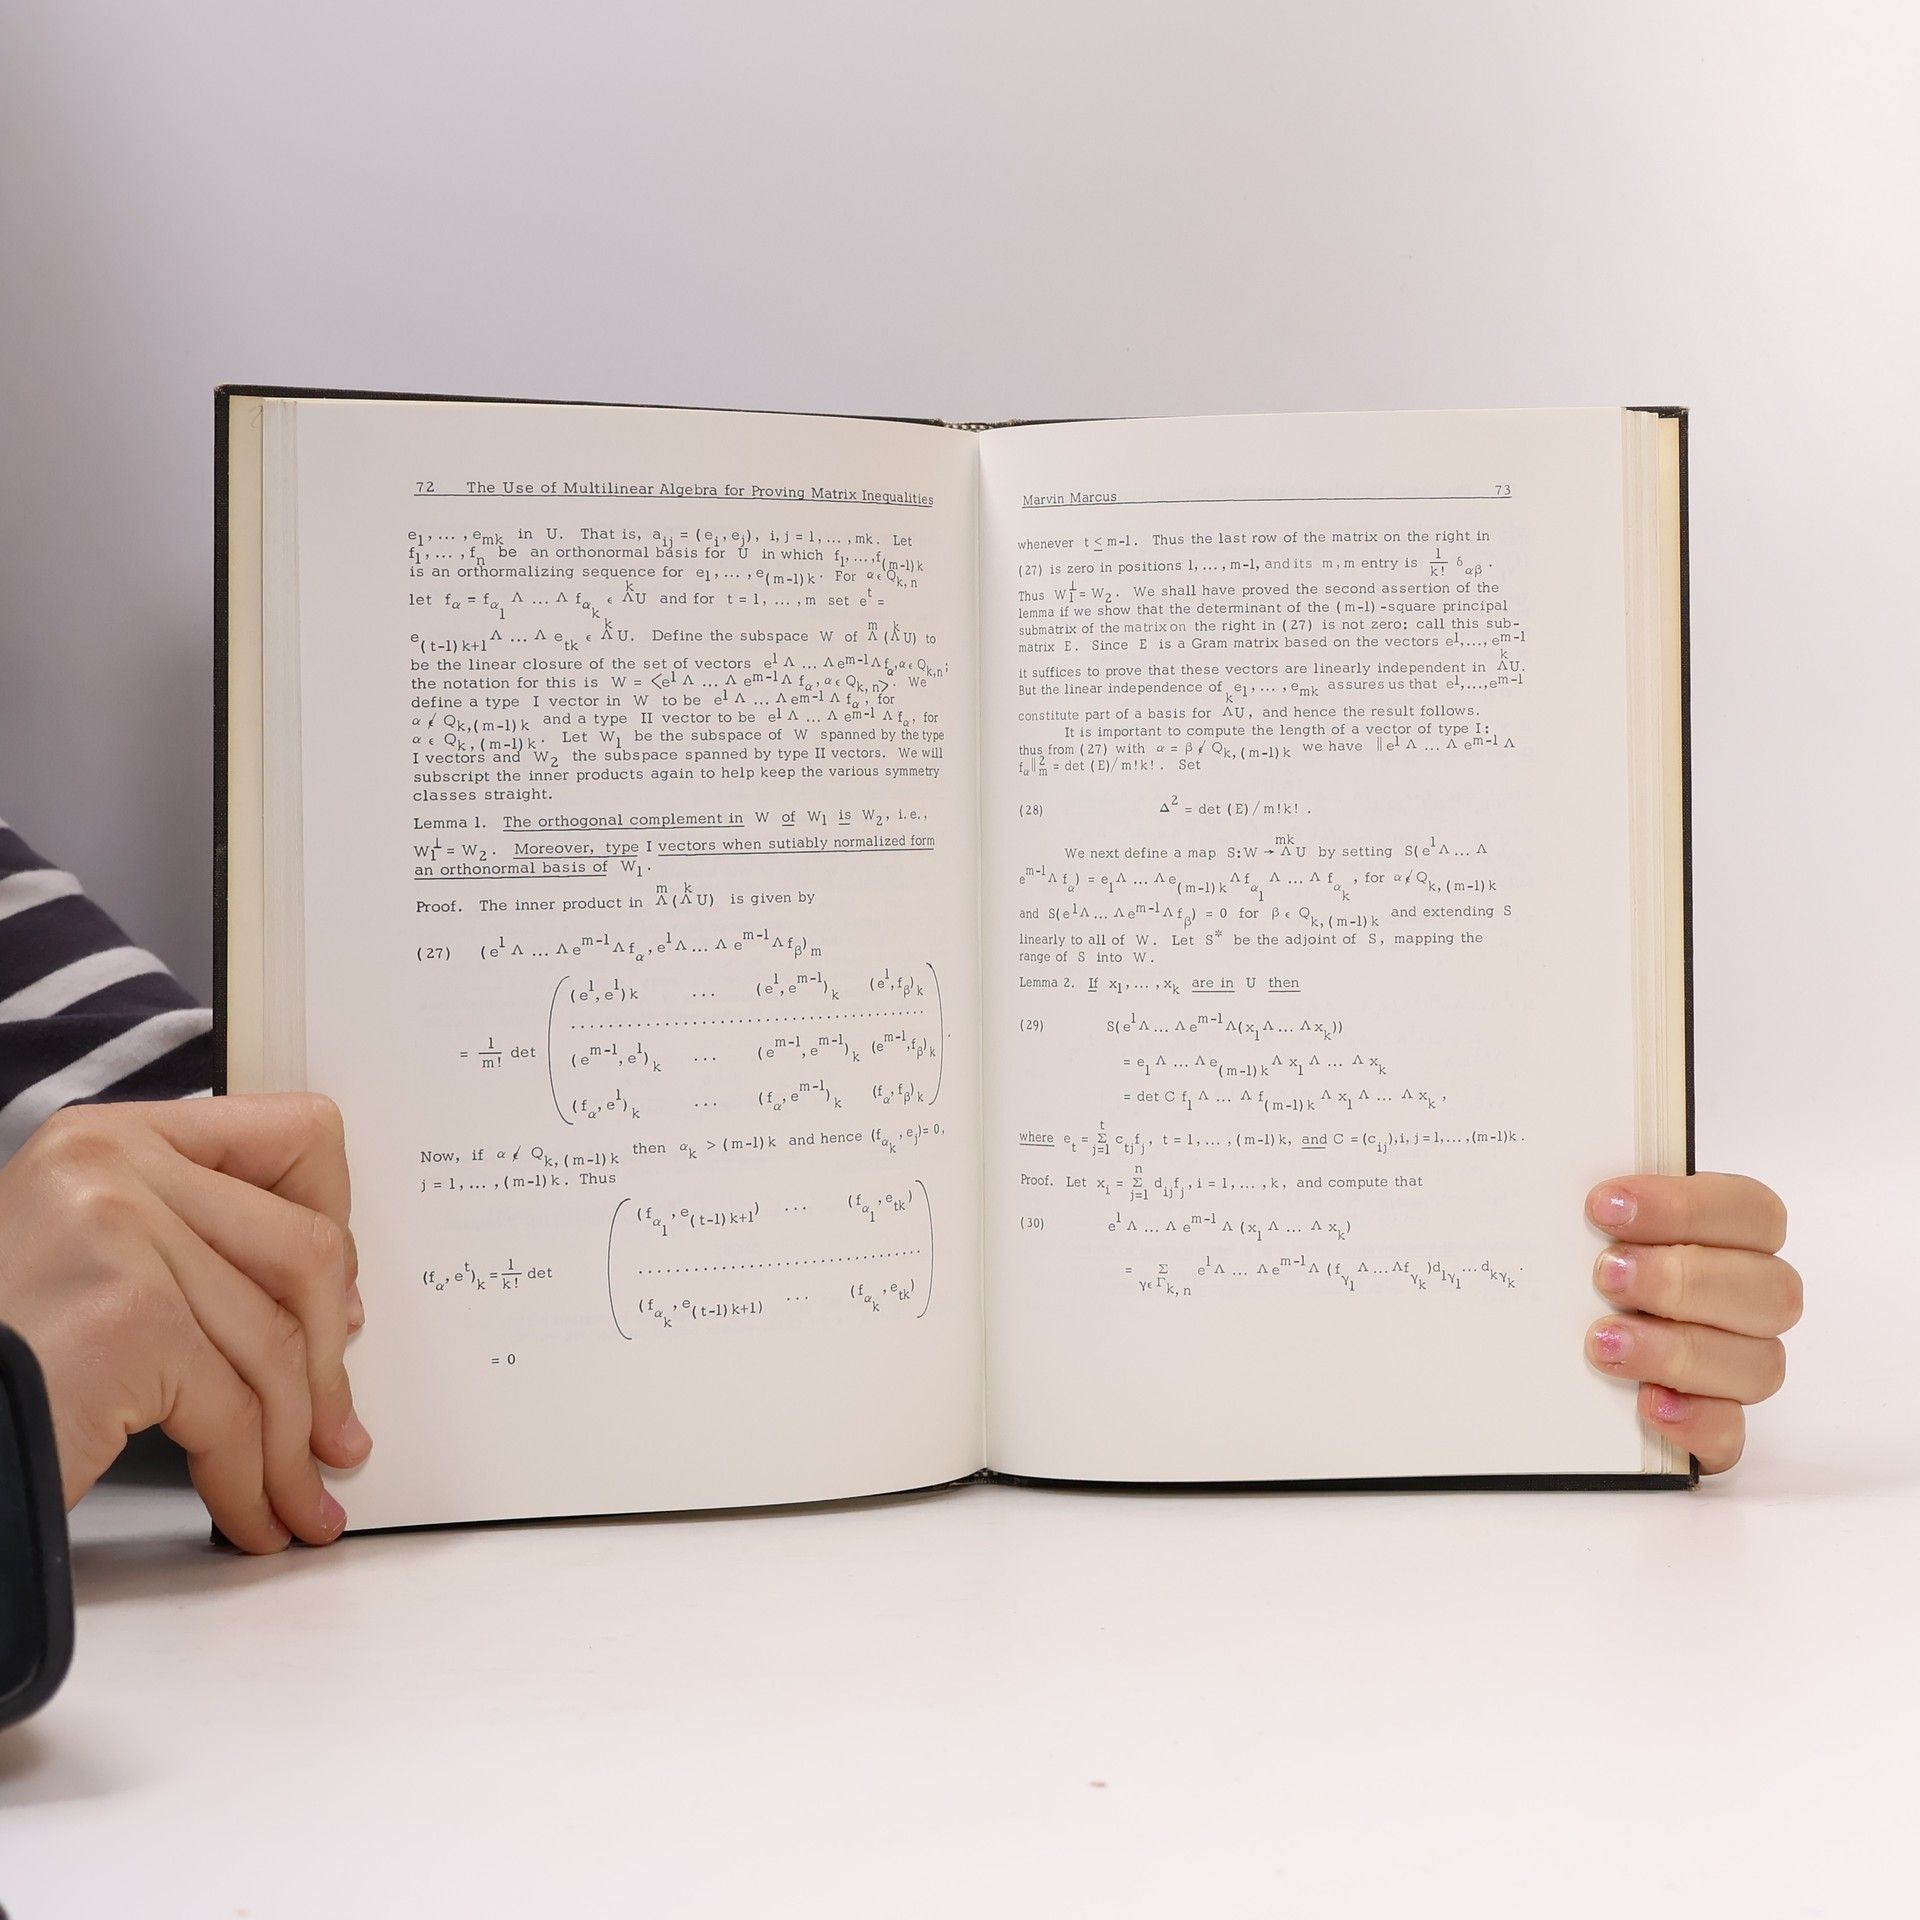 72 The Use of Multilinear Algebra for Proving Matrix Inequalities
e₁, ... , eₘₖ in U. That is, aᵢⱼ = (eᵢ, eⱼ), i, j = 1, ... , mk. Let
f₁, ... , fₙ be an orthonormal basis for U in which f₁, ..., f₍ₘ₋₁₎ₖ
is an orthormalizing sequence for e₁, ... , e₍ₘ₋₁₎ₖ. For α ϵ Q_{k,n}
let f_α = f_{α₁} Λ ... Λ f_{αₖ} ϵ Λ^k U and for t = 1, ... , m set e^t =
e_{(t-1)k+1} Λ ... Λ e_{tk} ϵ Λ^k U. Define the subspace W of Λ^m (Λ^k U) to
be the linear closure of the set of vectors e^1 Λ ... Λ e^{m-1} Λ f_α, α ϵ Q_{k,n};
the notation for this is W = <e^1 Λ ... Λ e^{m-1} Λ f_α, α ϵ Q_{k,n}>. We
define a type I vector in W to be e^1 Λ ... Λ e^{m-1} Λ f_α, for
α ∉ Q_{k,(m-1)k} and a type II vector to be e^1 Λ ... Λ e^{m-1} Λ f_α, for
α ϵ Q_{k,(m-1)k}. Let W₁ be the subspace of W spanned by the type
I vectors and W₂ the subspace spanned by type II vectors. We will
subscript the inner products again to help keep the various symmetry
classes straight.
Lemma 1. The orthogonal complement in W of W₁ is W₂, i.e.,
W₁^⊥ = W₂. Moreover, type I vectors when sutiably normalized form
an orthonormal basis of W₁.
Proof. The inner product in Λ^m (Λ^k U) is given by
(27) (e^1 Λ ... Λ e^{m-1} Λ f_α, e^1 Λ ... Λ e^{m-1} Λ f_β)_m
(e^1, e^1)_k ... (e^1, e^{m-1})_k (e^1, f_β)_k
........................................
= 1/m! det (e^{m-1}, e^1)_k ... (e^{m-1}, e^{m-1})_k (e^{m-1}, f_β)_k
(f_α, e^1)_k ... (f_α, e^{m-1})_k (f_α, f_β)_k .
Now, if α ∉ Q_{k,(m-1)k} then α_k > (m-1)k and hence (f_{α_k}, e_j) = 0,
j = 1, ... , (m-1)k. Thus
(f_{α₁}, e_{(t-1)k+1}) ... (f_{α₁}, e_{tk})
................................
(f_α, e^t)_k = 1/k! det
(f_{α_k}, e_{(t-1)k+1}) ... (f_{α_k}, e_{tk})
= 0
Marvin Marcus 73
whenever t ≤ m-1. Thus the last row of the matrix on the right in
(27) is zero in positions 1, ... , m-1, and its m, m entry is 1/k! δ_{αβ}.
Thus W₁^⊥ = W₂. We shall have proved the second assertion of the
lemma if we show that the determinant of the (m-1) -square principal
submatrix of the matrix on the right in (27) is not zero: call this sub-
matrix E. Since E is a Gram matrix based on the vectors e^1, ..., e^{m-1}
it suffices to prove that these vectors are linearly independent in Λ^k U.
But the linear independence of e₁, ... , eₘₖ assures us that e^1, ..., e^{m-1}
constitute part of a basis for Λ^k U, and hence the result follows.
It is important to compute the length of a vector of type I:
thus from (27) with α = β ∉ Q_{k,(m-1)k} we have ‖e^1 Λ ... Λ e^{m-1} Λ
f_α‖²_m = det (E)/m!k! . Set
(28) Δ² = det (E)/m!k! .
We next define a map S: W → Λ^{mk} U by setting S(e^1 Λ ... Λ
e^{m-1} Λ f_α) = e₁ Λ ... Λ e_{(m-1)k} Λ f_{α₁} Λ ... Λ f_{α_k}, for α ∉ Q_{k,(m-1)k}
and S(e^1 Λ ... Λ e^{m-1} Λ f_β) = 0 for β ϵ Q_{k,(m-1)k} and extending S
linearly to all of W. Let S* be the adjoint of S, mapping the
range of S into W.
Lemma 2. If x₁, ... , xₖ are in U then
(29) S(e^1 Λ ... Λ e^{m-1} Λ (x₁ Λ ... Λ xₖ))
= e₁ Λ ... Λ e_{(m-1)k} Λ x₁ Λ ... Λ xₖ
= det C f₁ Λ ... Λ f_{(m-1)k} Λ x₁ Λ ... Λ xₖ ,
where e_t = Σ_{j=1}^t c_{tj} f_j, t = 1, ... , (m-1)k, and C = (c_{ij}), i, j = 1, ..., (m-1)k.
Proof. Let x_i = Σ_{j=1}^n d_{ij} f_j, i = 1, ... , k, and compute that
(30) e^1 Λ ... Λ e^{m-1} Λ (x₁ Λ ... Λ xₖ)
= Σ_{γϵΓ_{k,n}} e^1 Λ ... Λ e^{m-1} Λ (f_{γ₁} Λ ... Λ f_{γ_k}) d_{1γ₁} ... d_{kγ_k} .